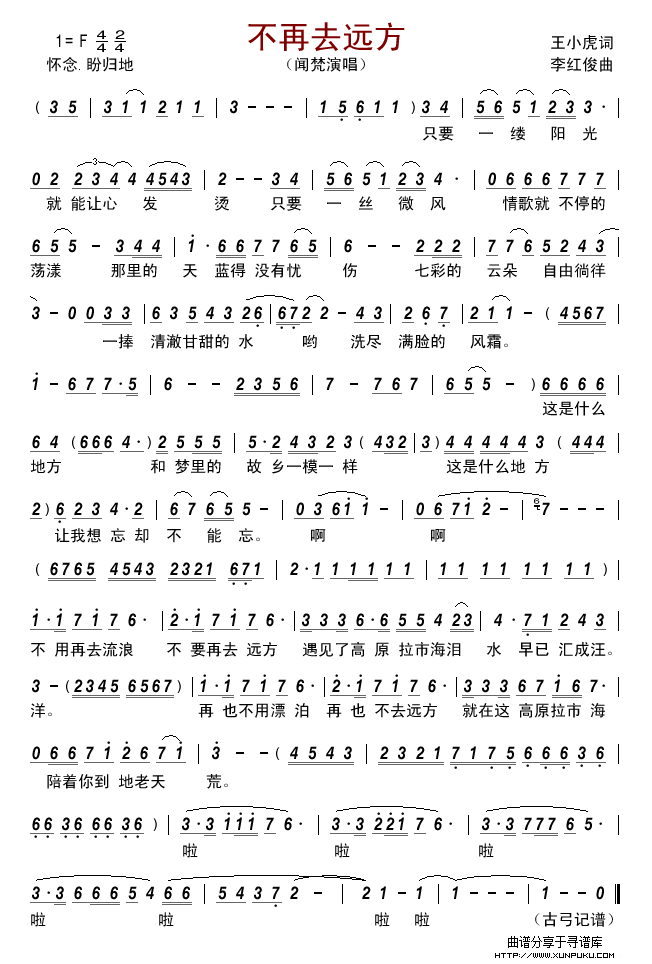 不再去远方
1= F 4/4 2/4
王小虎词
怀念.盼归地
（闻梵演唱）
李红俊曲
( 3 5 | 3 1 1 2 1 1 | 3 - - - | 1 5 6 1 1 ) 3 4 | 5 6 5 1 2 3 3 · |
只要 一 缕 阳 光
0 2 2 3 4 4 4 5 4 3 | 2 - - 3 4 | 5 6 5 1 2 3 4 · | 0 6 6 6 7 7 7 |
就 能让心 发 烫 只要 一 丝 微 风 情歌就 不停的
6 5 5 - 3 4 4 | 1 · 6 6 7 7 6 5 | 6 - - 2 2 2 | 7 7 6 5 2 4 3 |
荡漾 那里的 天 蓝得 没有忧 伤 七彩的 云朵 自由徜徉
3 - 0 0 3 3 | 6 3 5 4 3 2 6 | 6 7 2 - 4 3 | 2 6 7 | 2 1 1 - ( 4 5 6 7 |
一捧 清澈甘甜的 水 哟 洗尽 满脸的 风霜。
1 - 6 7 7 · 5 | 6 - - 2 3 5 6 | 7 - 7 6 7 | 6 5 5 - ) 6 6 6 6 |
这是什么
6 4 ( 6 6 6 4 · ) 2 5 5 5 | 5 · 2 4 3 2 3 ( 4 3 2 | 3 ) 4 4 4 4 4 3 ( 4 4 4 |
地方 和 梦里的 故 乡一模一 样 这是什么地 方
2 ) 6 2 3 4 · 2 | 6 7 6 5 5 - | 0 3 6 1 1 - | 0 6 7 1 2 - | 6 7 - - |
让我想 忘 却 不 能 忘。 啊 啊
( 6 7 6 5 4 5 4 3 2 3 2 1 6 7 1 | 2 · 1 1 1 1 1 1 | 1 1 1 1 1 1 1 1 ) |
1 · 1 7 1 7 6 · | 2 · 1 7 1 7 6 · | 3 3 3 6 · 6 5 5 4 2 3 | 4 · 7 1 2 4 3 |
不 用再去流浪 不 要再去 远方 遇见了高 原 拉市海泪 水 早已 汇成汪。
3 - ( 2 3 4 5 6 5 6 7 ) | 1 · 1 7 1 7 6 · | 2 · 1 7 1 7 6 · | 3 3 3 6 7 1 6 7 · |
洋。 再 也不用漂 泊 再 也 不去远方 就在这 高原拉市 海
0 6 6 7 1 2 6 7 1 | 3 - - ( 4 5 4 3 | 2 3 2 1 7 1 7 5 6 6 6 3 6 |
陪着你到 地老天 荒。
6 6 3 6 6 6 3 6 ) | 3 · 3 1 1 1 7 6 · | 3 · 3 2 2 1 7 6 · | 3 · 3 7 7 7 6 5 · |
啦 啦 啦
3 · 3 6 6 6 5 4 6 6 | 5 4 3 7 2 - - | 2 1 - 1 | 1 - - - | 1 - - 0 ‖
啦 啦 啦 啦 （古弓记谱）
曲谱分享于寻谱库
HTTP://WWW.XUNPUKU.COM